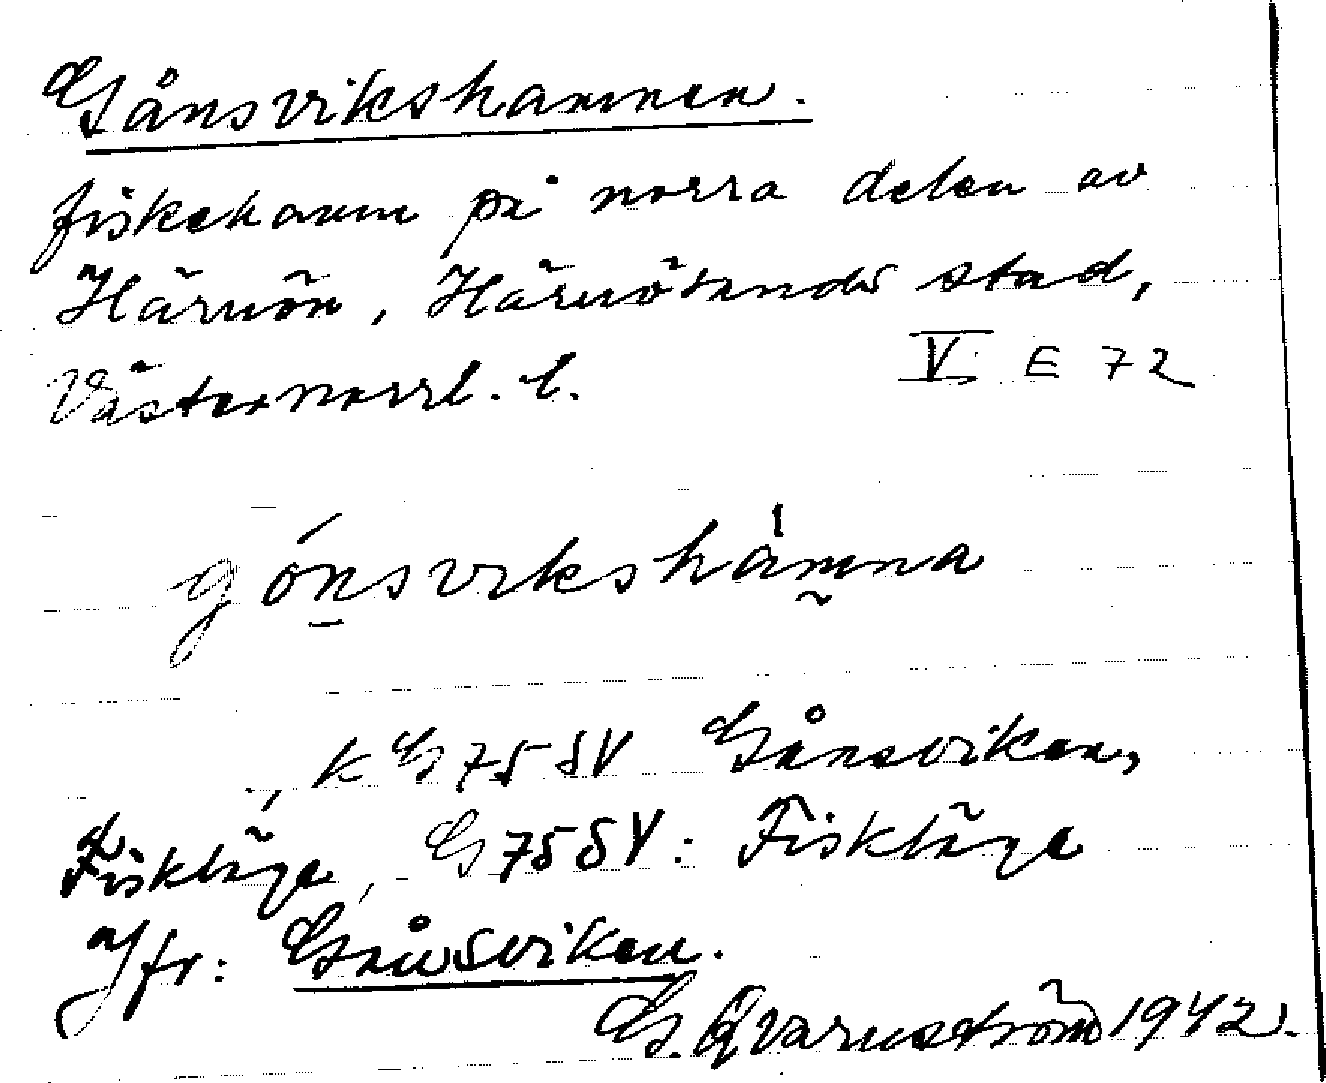 Gånsvikshamnen.
fiskehamn på norra delen av
Härnön, Härnösands stad,
Västernorrl. l.
V E 72
gónsvikshàmna
, k G 75 SV Gånsviken,
Fiskläge, G 75 SV: Fiskläge
Jfr: Gånsviken.
G. Qvarnström 1942.